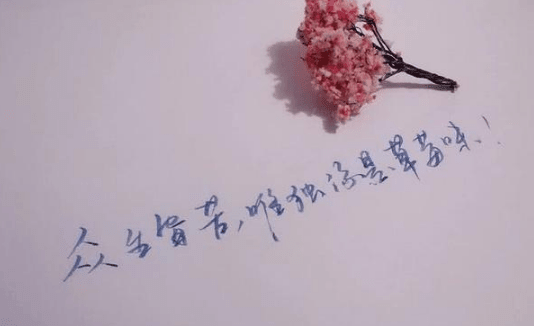 众生皆苦,唯独你是草莓味!